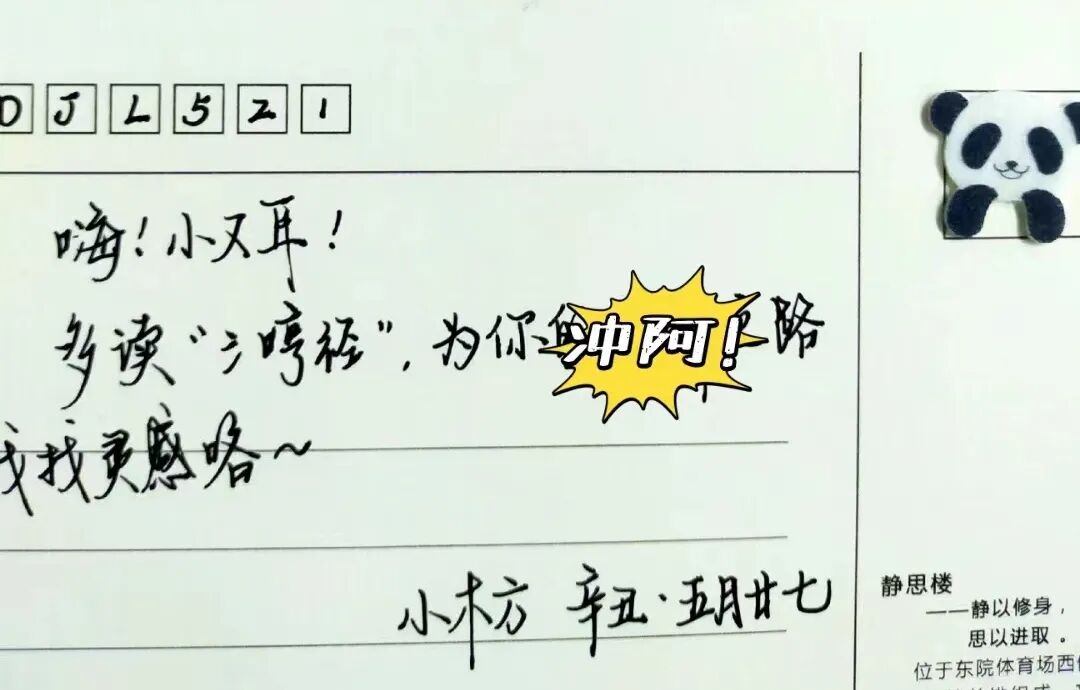 DJL521
嗨！小又耳！
多读“三哼径”，为你
冲阿！
路
找找灵感咯～
小木方 辛丑·五月廿七
静思楼
——静以修身，
思以进取。
位于东院体育场西